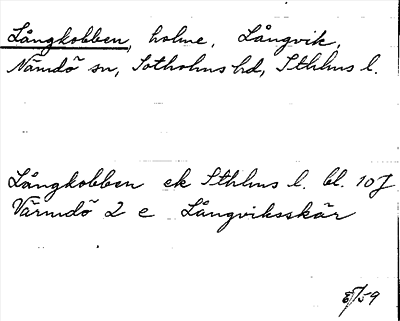 Långkobben, holme, Långvik,
Nämdö sn, Sotholms hd, Sthlms l.
Långkobben ek Sthlms l. bl. 10J
Värmdö 2 e Långviksskär